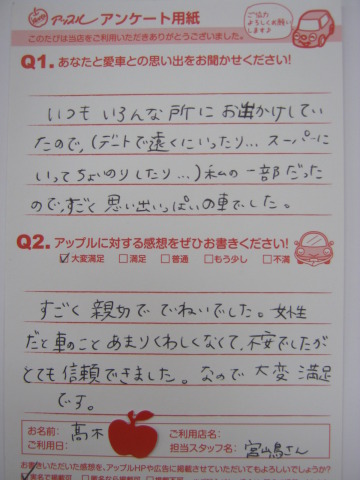 アップル アンケート用紙
このたびは当店をご利用いただきありがとうございました。
ご協力
よろしくお願い
します♪
Q1. あなたと愛車との思い出をお聞かせください!
いつも いろんな所に お出かけしてい
たので、(デートで遠くにいったり... スーパーに
いって ちょいのりしたり...) 私の一部だった
ので、すごく 思い出いっぱいの車でした。
Q2. アップルに対する感想をぜひお書きください!
☑大変満足 □満足 □普通 □もう少し □不満
すごく 親切で ていねいでした。女性
だと車のこと あまりくわしくなくて、不安でしたが
とても信頼できました。なので 大変 満足
です。
お名前: 高木
ご利用店名:
ご利用日:
担当スタッフ名: 宮島さん
お書きいただいた感想を、アップルHPや広告に掲載させていただいてもよろしいでしょうか?